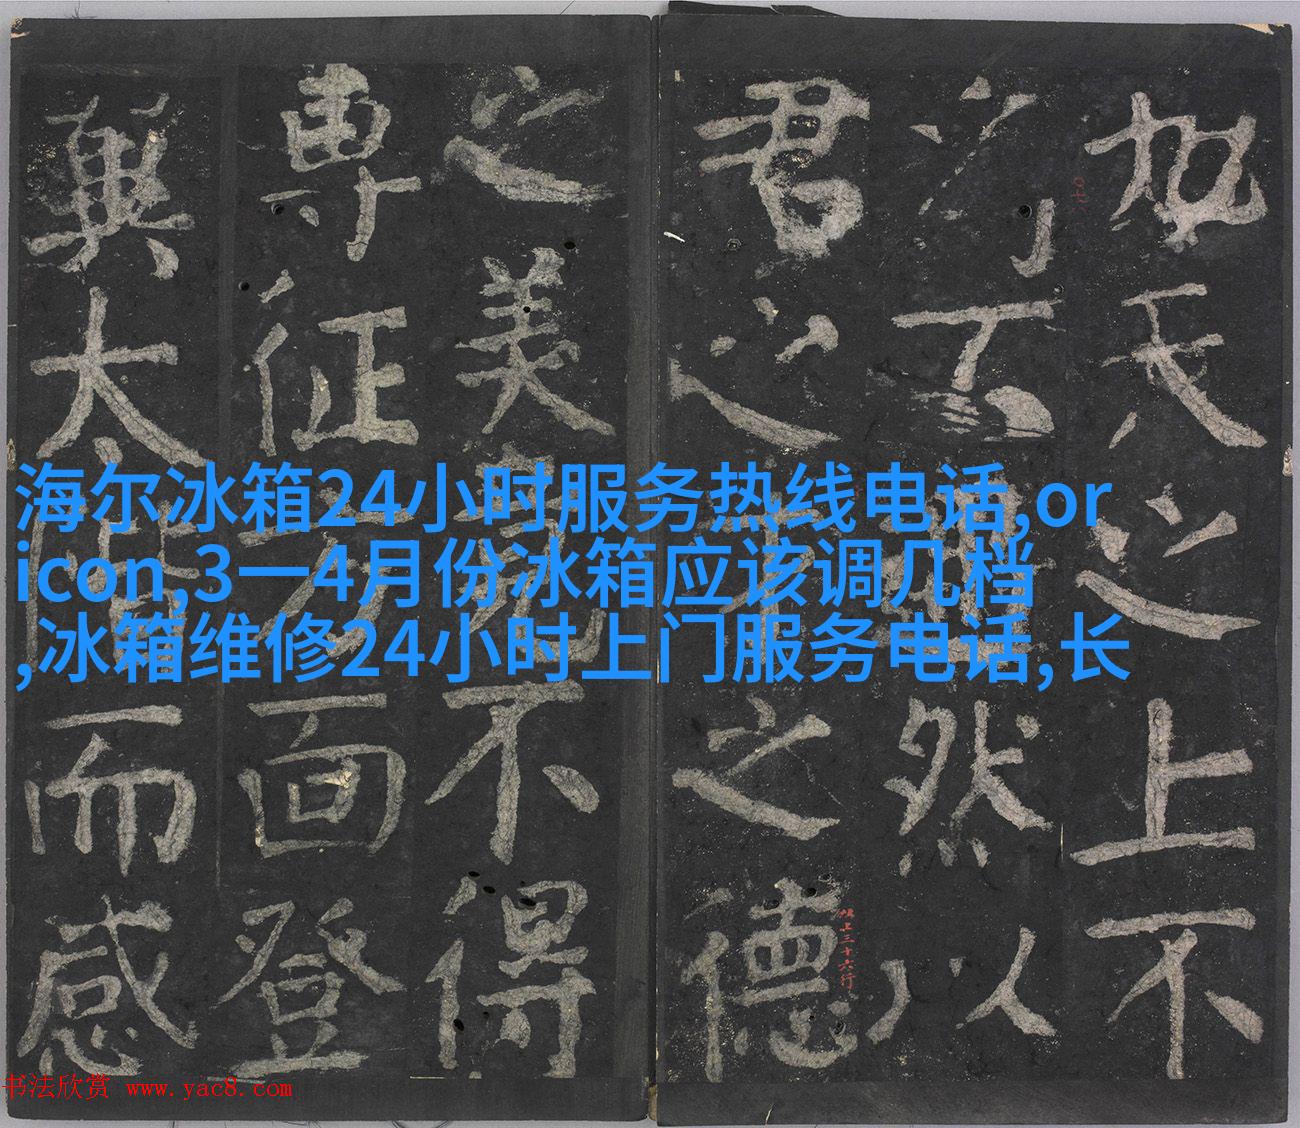 海尔冰箱24小时服务热线电话,or
icon,3一4月份冰箱应该调几档
,冰箱维修24小时上门服务电话,长
之上不
不然以
君之之德
之美不得
專征方面登
翼太階而感
三十六行
书法欣赏 www.yac8.com